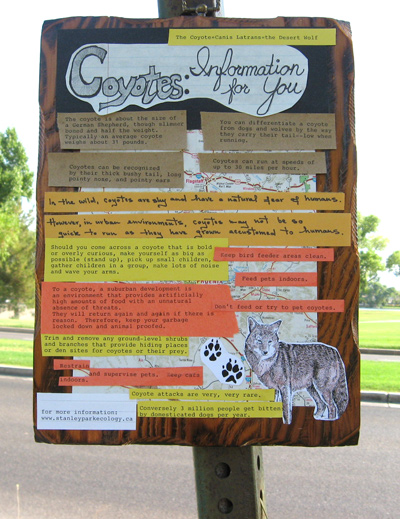 The Coyote=Canis Latrans=the Desert Wolf
Coyotes: Information
for You
The coyote is about the size of
a German Shepherd, though slimmer
boned and half the weight.
Typically an average coyote
weighs about 31 pounds.
You can differentiate a coyote
from dogs and wolves by the way
they carry their tail-low when
running.
Coyotes can be recognized
by their thick bushy tail, long
pointy nose, and pointy ears
Coyotes can run at speeds of
up to 30 miles per hour.
Flagstaff
In the wild, coyotes are shy and have a natural fear of humans.
However, in urban environments, coyotes may not be so
quick to run as they have grown accustomed to humans.
Should you come across a coyote that is bold
or overly curious, make yourself as big as
possible (stand up), pick up small children,
gather children in a group, make lots of noise
and wave your arms.
Keep bird feeder areas clean.
Feed pets indoors.
To a coyote, a suburban development is
an environment that provides artificially
high amounts of food with an unnatural
absence of threats.
They will return again and again if these is
reason. Therefore, keep your garbage
locked down and animal proofed.
Don't feed or try to pet coyotes.
Trim and remove any ground-level shrubs
and branches that provide hiding places
or den sites for coyotes or their prey.
Restrain
and supervise pets. Keep cats
indoors.
Coyote attacks are very, very rare.
Conversely 3 million people get bitten
by domesticated dogs per year.
for more information:
www.stanleyparkecology.ca